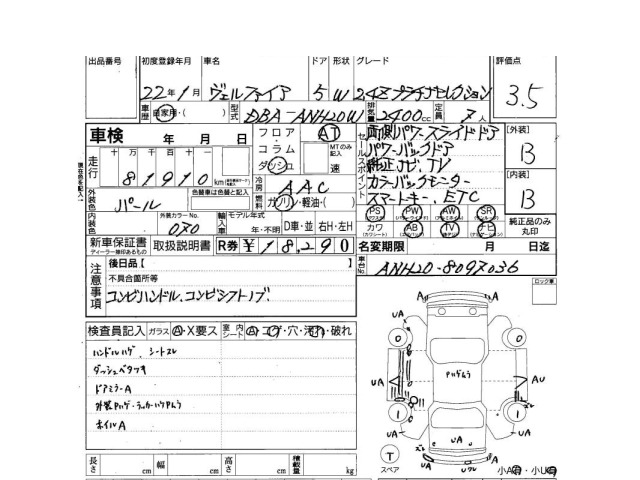 出品番号 初度登録年月 車名 ドア 形状 グレード 評価点
22年1月 ヴェルファイア 5 W 2.4Z プラチナセレクション 3.5
車歴 自家用・( ) 型式 DBA-ANH20W 排気量 2400cc 定員 7人
車検 年 月 日 フロア・コラム・ダッシュ AT MTのみ記入 速
走行 十万 千百十 km
81910
セールスポイント
両側パワースライドドア
パワーバックドア
純正ナビ、TV
カラーバックモニター
スマートキー、ETC
【外装】
B
【内装】
B
冷房 AAC
燃料 ガソリン・軽油・( )
外装色 色替車は色替と記入
パール
内装色 外装カラーNo. 070 輸入車 モデル年式 年・不明 D車・並 右H・左H
PS PW AW SR
カワ AB TV ナビ 純正品のみ丸印
新車保証書 取扱説明書 R券 ¥18,290 名変期限 月 日迄
ディーラー捺印あるもの
現在色を記入
注意事項 後日品【 】 車台No. ANH20-8097036
不具合箇所等 ロック車
コンビハンドル、コンビシフトノブ、
検査員記入 ガラス A・X要ス 室内シート A・コゲ・穴・汚れ・破れ
ハンドルハゲ、シートスレ
ダッシュベタツキ
ドアミラーA
ホイルA
長さ cm 幅 cm 高さ cm 積載量 kg
A A
UA
0 0
UA Pハゲムラ AU
UA 1 1 スレ
UA
T スペア
スレ UA UスレA
小A・小U